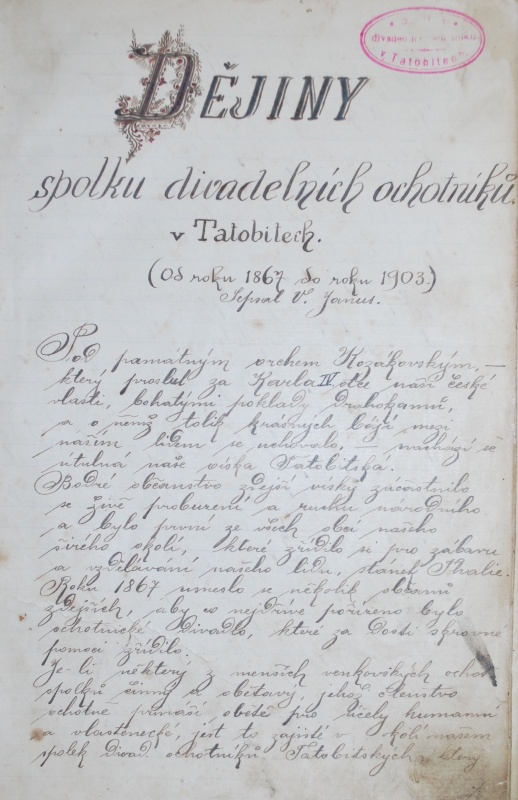 divadel
v Tatobitech
DĚJINY
spolku divadelních ochotníků.
v Tatobitech.
(Od roku 1867 do roku 1903.)
Sepsal V. Janus.
Pod památným vrchem Kozákovským, —
který proslul za Karla IV. otce naší české
vlasti, bohatými poklady drahokamů,
a o němž tolik krásných bájí mezi
naším lidem se uchovalo, — nachází se
útulná naše víska Tatobitská.
Bodré občanstvo zdejší vísky zúčastnilo
se živě probuzení a ruchu národního
a bylo první ze všech obcí našeho
širého okolí, které zřídilo si pro zábavu
a vzdělávání našeho lidu, stánek Thalie.
Roku 1867 usneslo se několik občanů
zdejších, aby co nejdříve pořízeno bylo
ochotnické divadlo, které za dosti skrovné
pomoci zřídilo.
Je-li některý z menších venkovských ochot.
spolků činný a obětavý, jehož členstvo
ochotně přináší oběti pro účely humanní
a vlastenecké, jest to zajisté v okolí našem
spolek divad. ochotníků Tatobitských